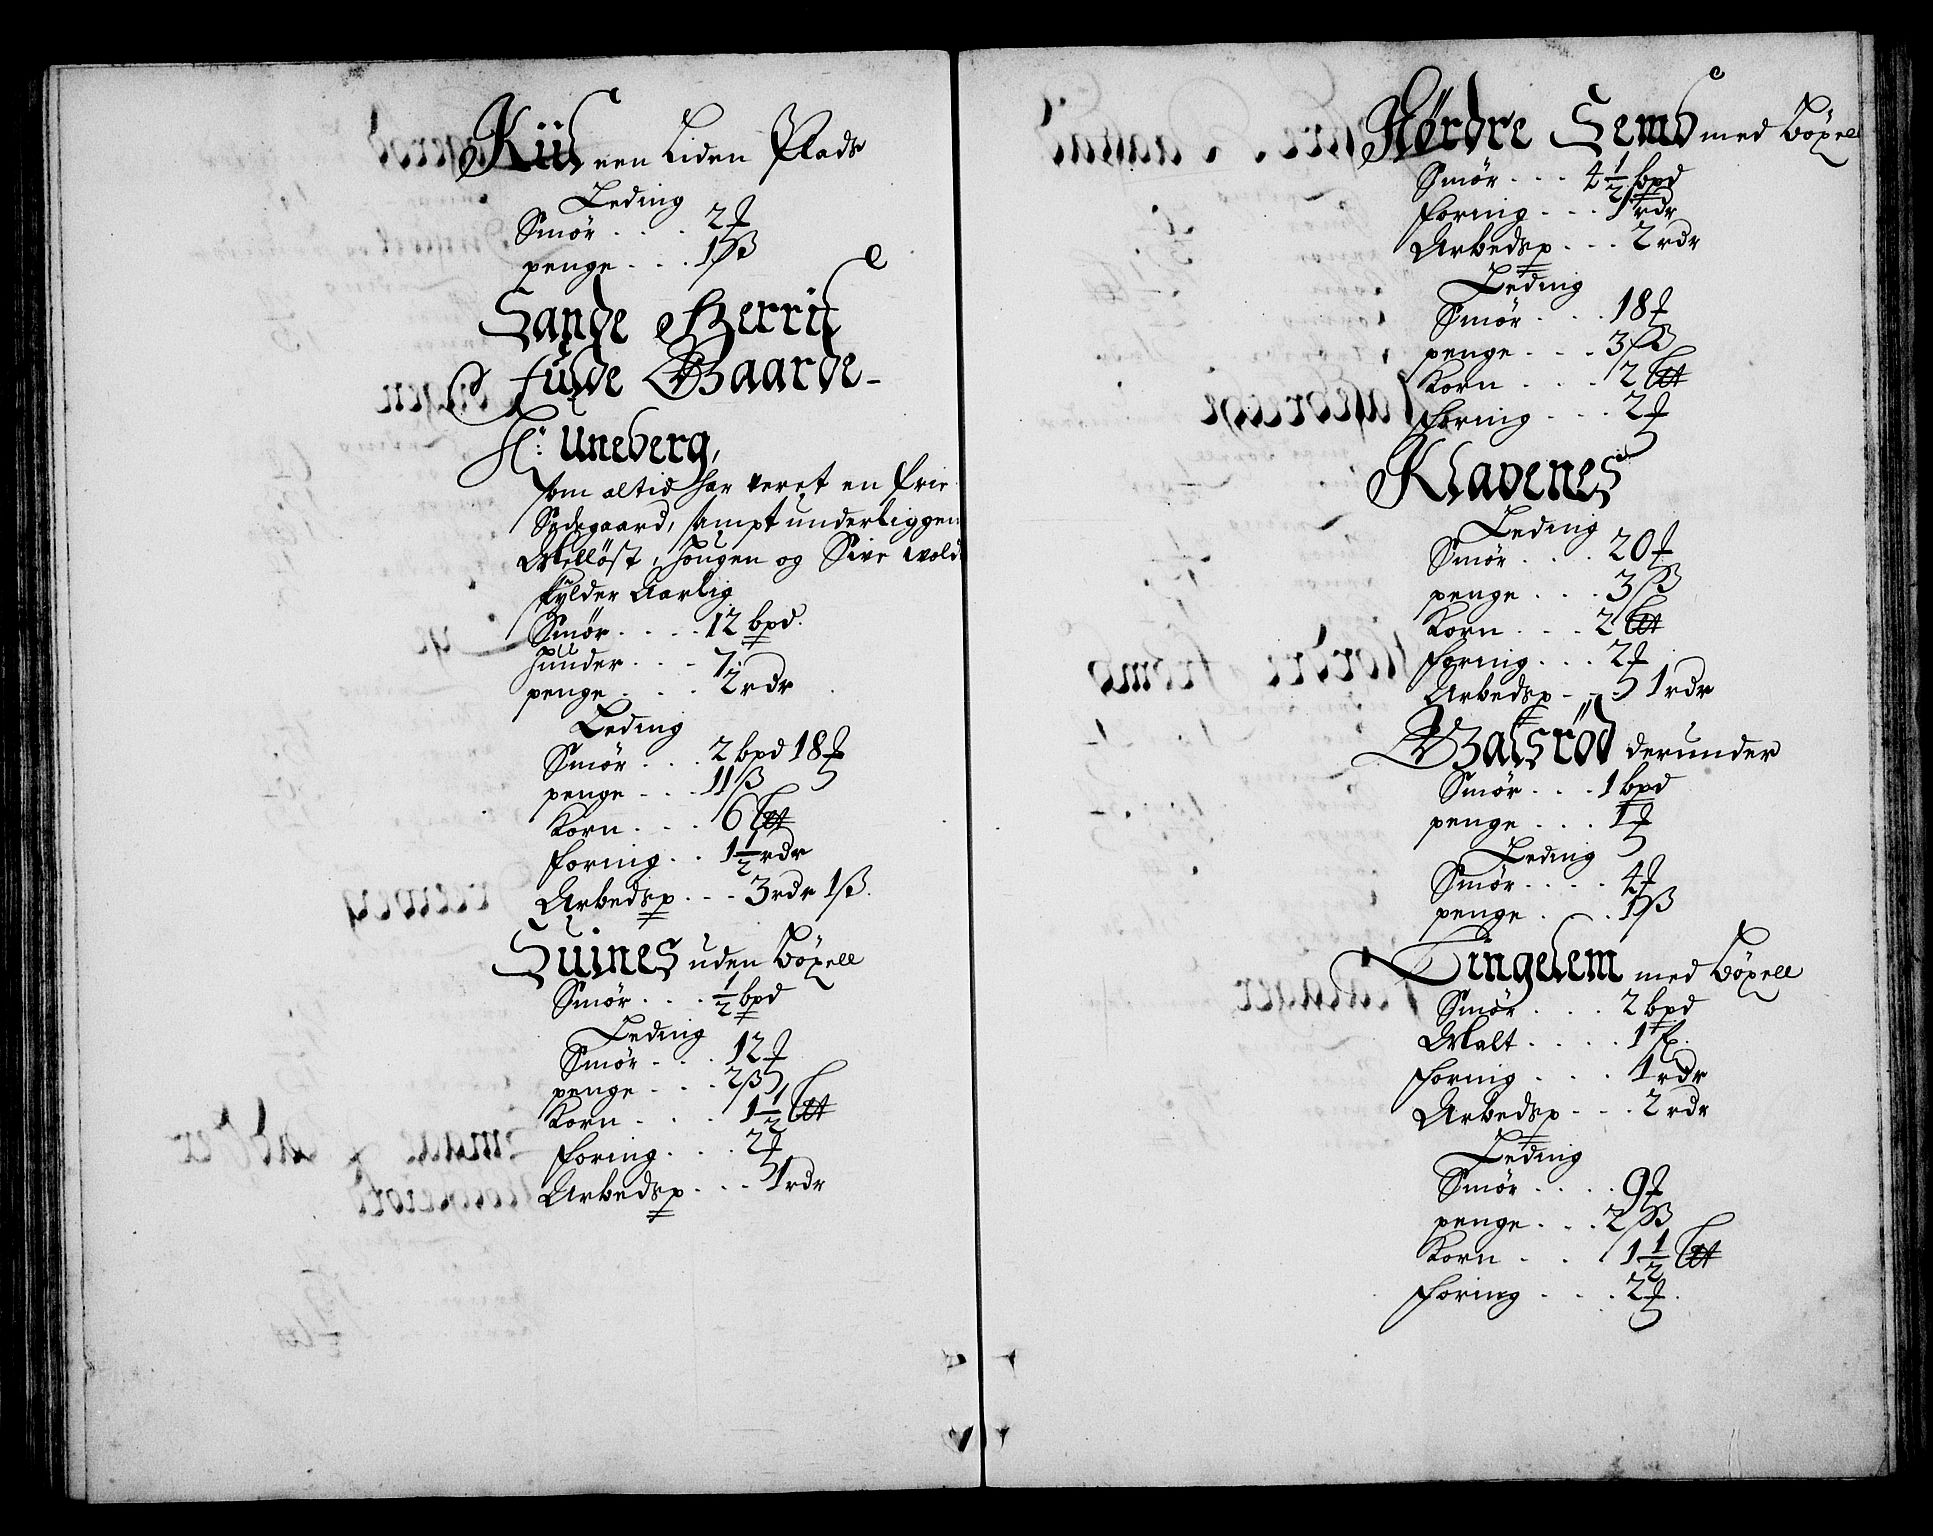 Kiil een Liden Plads
Leding
Smør . . . . 2 ℔
penge . . . 1 ß
Sande Herrit
Fulde Gaarde
H: Uneberg,
som altid har veret en frie
Sædegaard, sampt underliggen
Melløst, Hougen og Sire wold
skylder Aarlig
Smør . . . . 12 bpd.
Huuder . . . 7
penge . . . . 2 rdr
Leding
Smør . . . 2 bpd 18 ℔
penge . . . 11 ß
Korn . . . . 6
foring . . 1 1/2 rdr
Arbedsp . . . 3 rdr 1 ß.
Suines uden Bøxell
Smør . . . 1/2 bpd
Leding
Smør . . . 12 ℔
penge . . . 2 ß
Korn . . . . 1 1/2
foring . . . . 2 ℔
Arbedsp . . . 1 rdr
Nørdre Semb med Bøxell
Smør . . . 4 1/2 bpd
foring . . . 1 rdr
Arbedsp . . . 2 rdr
Leding
Smør . . . . 18 ℔
penge . . . . 3 ß
Korn . . . . 2
foring . . . . 2 ℔
Klavenes
Leding
Smør . . . . 20 ℔
penge . . . . 3 ß
Korn . . . . 2
foring . . . 2 ℔
Arbedsp . . . 1 rdr
Galsrød derunder
Smør . . . . 1 bpd
penge . . . . 1 ℔
Leding
Smør . . . . 4 ℔
penge . . . . 1 ß
Tingelem med Bøxell
Smør . . . . 2 bpd
Malt . . . . . 1 .
foring . . . . 1 rdr
Arbedsp . . . 2 rdr
Leding
Smør . . . . 9 ℔
penge . . . 2 ß
Korn . . . 1 1/2
foring . . . . 2 ℔.